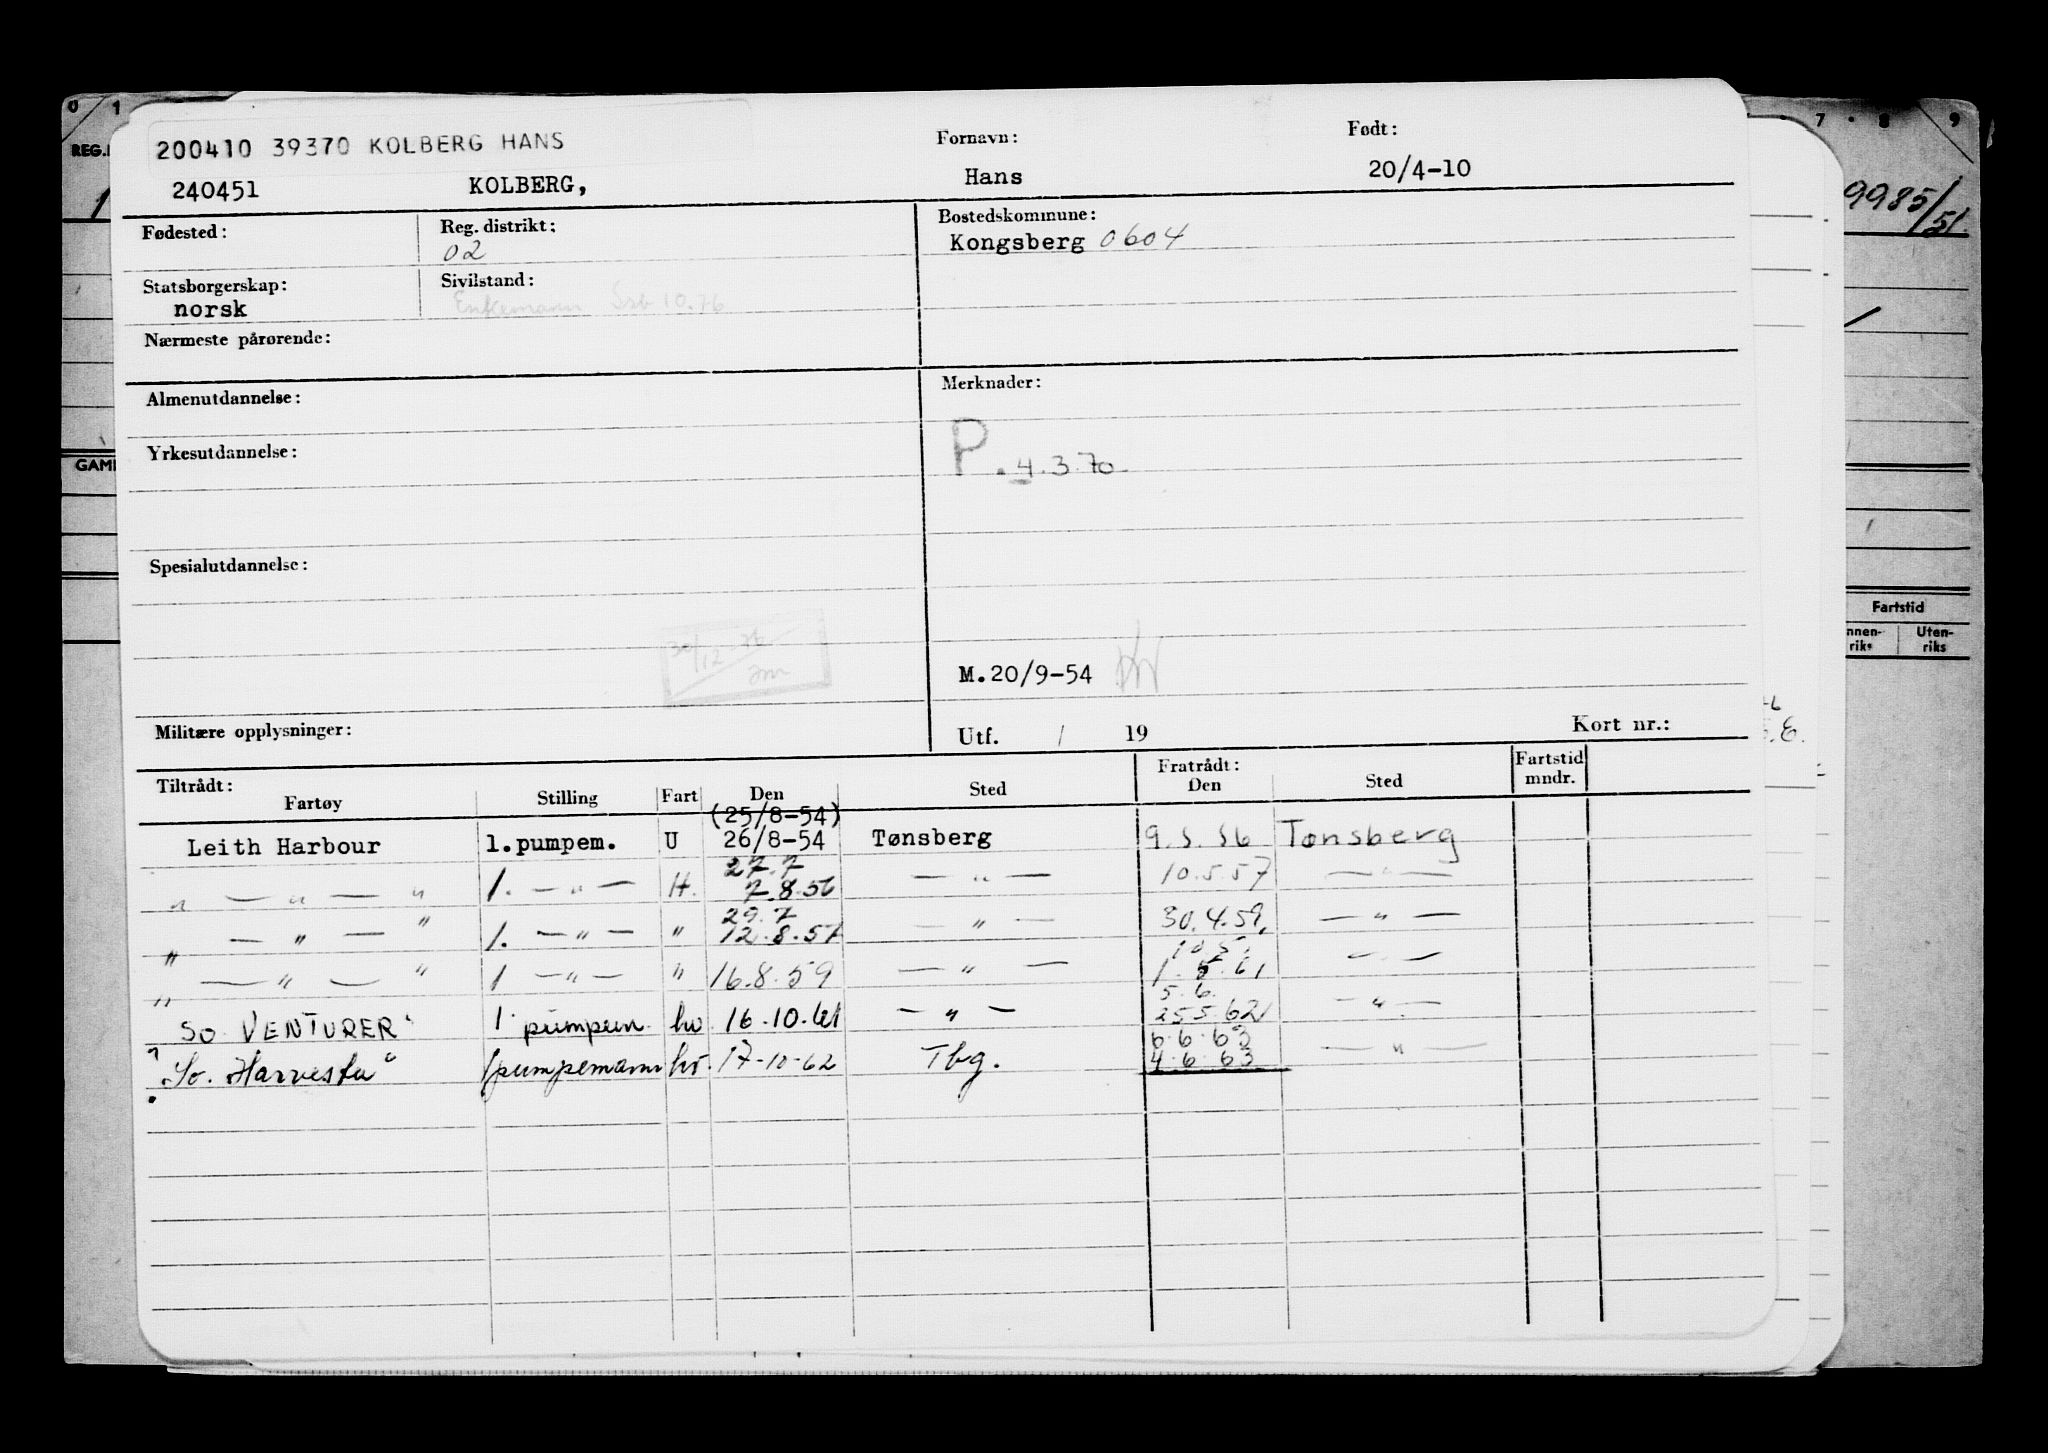 0 1 7 8 9
REG.
200410 39370 KOLBERG HANS
Fornavn: Født:
240451 KOLBERG, Hans 20/4-10
9985/51.
Fødested: Reg. distrikt: Bostedskommune:
02 Kongsberg 0604
Statsborgerskap: Sivilstand:
norsk Enkemann Ssb 10.76
Nærmeste pårørende:
Almenutdannelse: Merknader:
Yrkesutdannelse: P. 4.3.70
GAM
Spesialutdannelse:
Fartstid
nnen-riks Uten-riks
30/12-76
M.20/9-54
Militære opplysninger: Utf. / 19 Kort nr.:
Tiltrådt: Fratrådt: Fartstid
Fartøy Stilling Fart Den Sted Den Sted mndr.
(25/8-54)
Leith Harbour 1.pumpem. U 26/8-54 Tønsberg 9.5.56 Tønsberg
27.7
" — " — " 1. — " — H. 7.8.56 — " — 10.5.57 — " —
29.7
" — " — " 1. — " — " 12.8.57 — " — 30.4.59. — " —
" — " — " 1 — " — " 16.8.59 — " — 1.5.61 — " —
5.6.
So. VENTURER" 1. pumpem. hv 16.10.61 — " — 25.5.62 — " —
6.6.63
? "So. Harvester" 1 pumpemann hv. 17-10-62 Tbg. 4.6.63 — " —